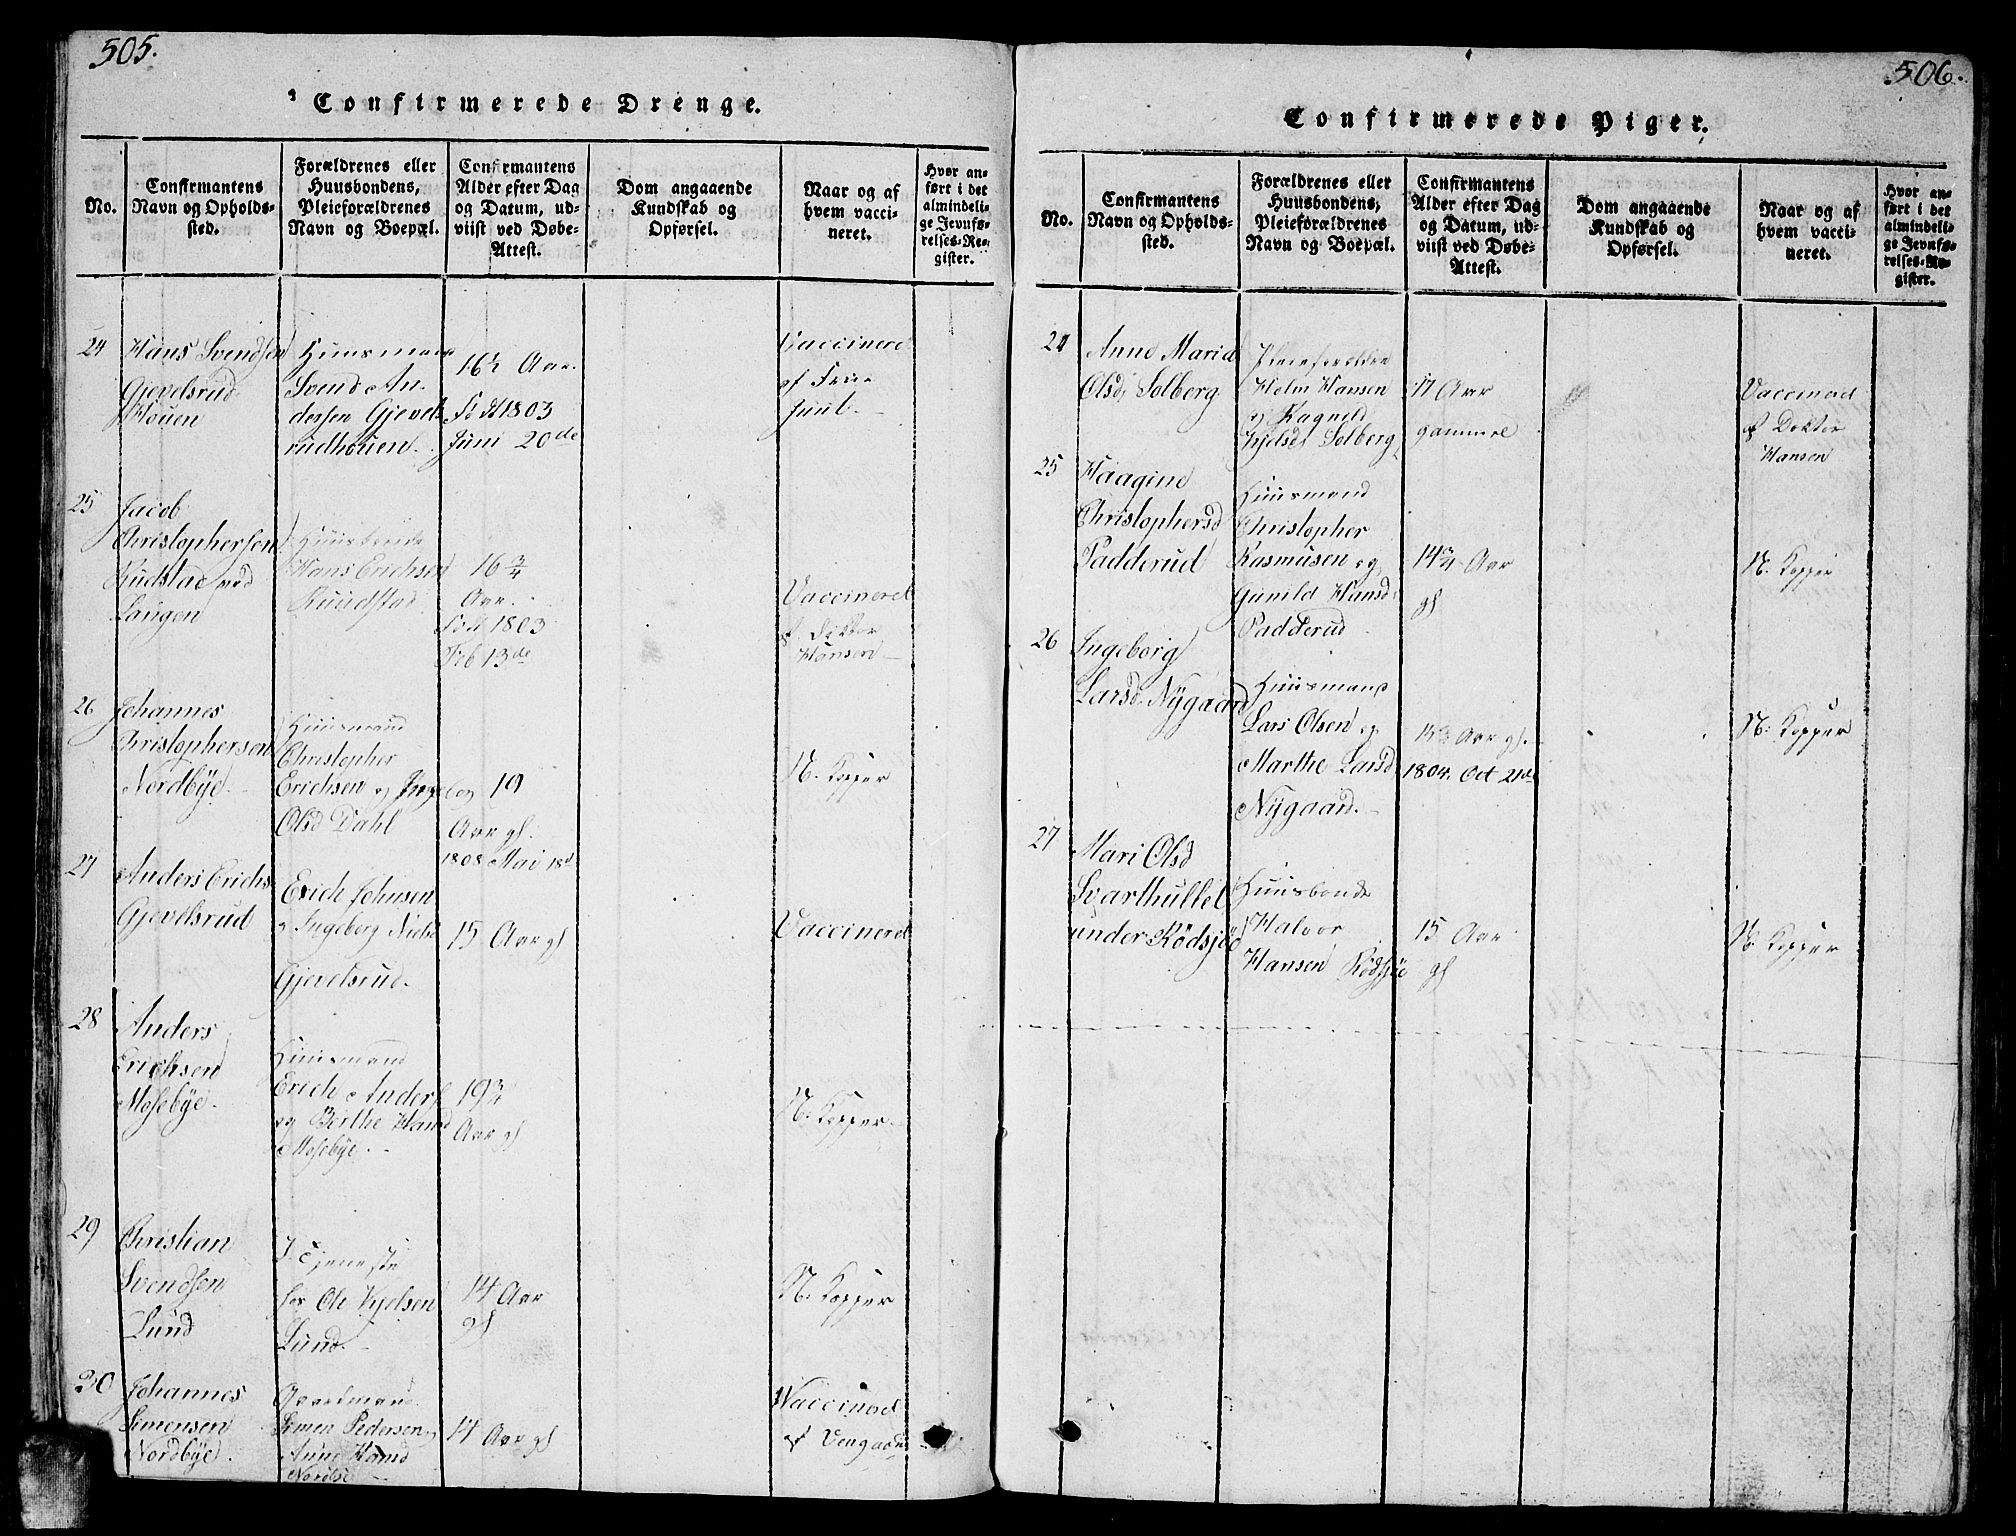 505.
Confirmerede Drenge.
No.
Confirmantens
Navn og Opholds-
sted.
Forældrenes eller
Huusbondens,
Pleieforældrenes
Navn og Boepæl.
Confirmantens
Alder efter Dag
og Datum, ud-
viist ved Døbe-
Attest.
Dom angaaende
Kundskab og
Opførsel.
Naar og af
hvem vacci-
neret.
Hvor an-
ført i det
almindeli-
ge Jevnfø-
relses-Re-
gister.
24
Hans Svendsen
Gjevelsrud
Houen
Huusmand
Svend An-
dersen Gjevels
rudhouen.
16½ Aar.
Født 1803
Juni 20de
Vaccineret
af Frue
Juul.
25
Jacob
Christophersen
Rudstad ved
Laugen
Huusbonde
Hans Erichsen
Ruudstad.
16 3/4
Aar.
Født 1803
Feb 13de
Vaccineret
af Doktor
Hansen
26
Johannes
Christophersen
Nordbÿe
Huusmand
Christopher
Erichsen og Ingeborg
Olsd Dahl
19
Aar gl.
1808 Mai 18d
N. Kopper
27
Anders Erichs
Gjevelsrud
Erich Johnsen
og Ingeborg Nielsd
Gjevelsrud.
15 Aar gl
Vaccineret
28
Anders
Erichsen
Mosebÿe.
Huusmand
Erich Anders
og Berthe Hansd
Mosebÿe.
19 3/4
Aar gl
N. Kopper.
29
Christian
Svendsen
Lund
I Tjeneste
hos Ole Kjelsen
Lund.
14 Aar
gl
N. Kopper
30
Johannes
Simensen
Nordbÿe.
Gaardmand
Simen Pedersen og
Anne Hansd
14 Aar gl
Vaccineret
af
506.
Confirmerede Piger.
No.
Confirmantens
Navn og Opholds-
sted.
Forældrenes eller
Huusbondens,
Pleieforældrenes
Navn og Boepæl.
Confirmantens
Alder efter Dag
og Datum, ud-
viist ved Døbe-
Attest.
Dom angaaende
Kundskab og
Opførsel.
Naar og af
hvem vacci-
neret.
Hvor an-
ført i det
almindeli-
ge Jevnfø-
relses-Re-
gister.
24
Anne Maria
Olsd Solberg
Pleieforældre
Holm Hansen
og Ragnild
Kjelsd Solberg
17 Aar
gammel
Vaccineret
af Doktor
Hansen
25
Haagine
Christophersd
Padderud
Huusmand
Christopher
Rasmusen og
Gunild Hansd
Padderud
14 3/4 Aar
gl
N. Kopper
26
Ingeborg
Larsd. Nÿgaard
Huusmand
Lars Olsen og
Marthe Larsd
Nÿgaard.
Aar gl.
1804. Oct 21de
N. Kopper
27
Mari Olsd
Svarthullet
under Rödsjöe
Huusbonde
Halvor
Hansen Rödsjöe
15 Aar
gl
N. Kopper